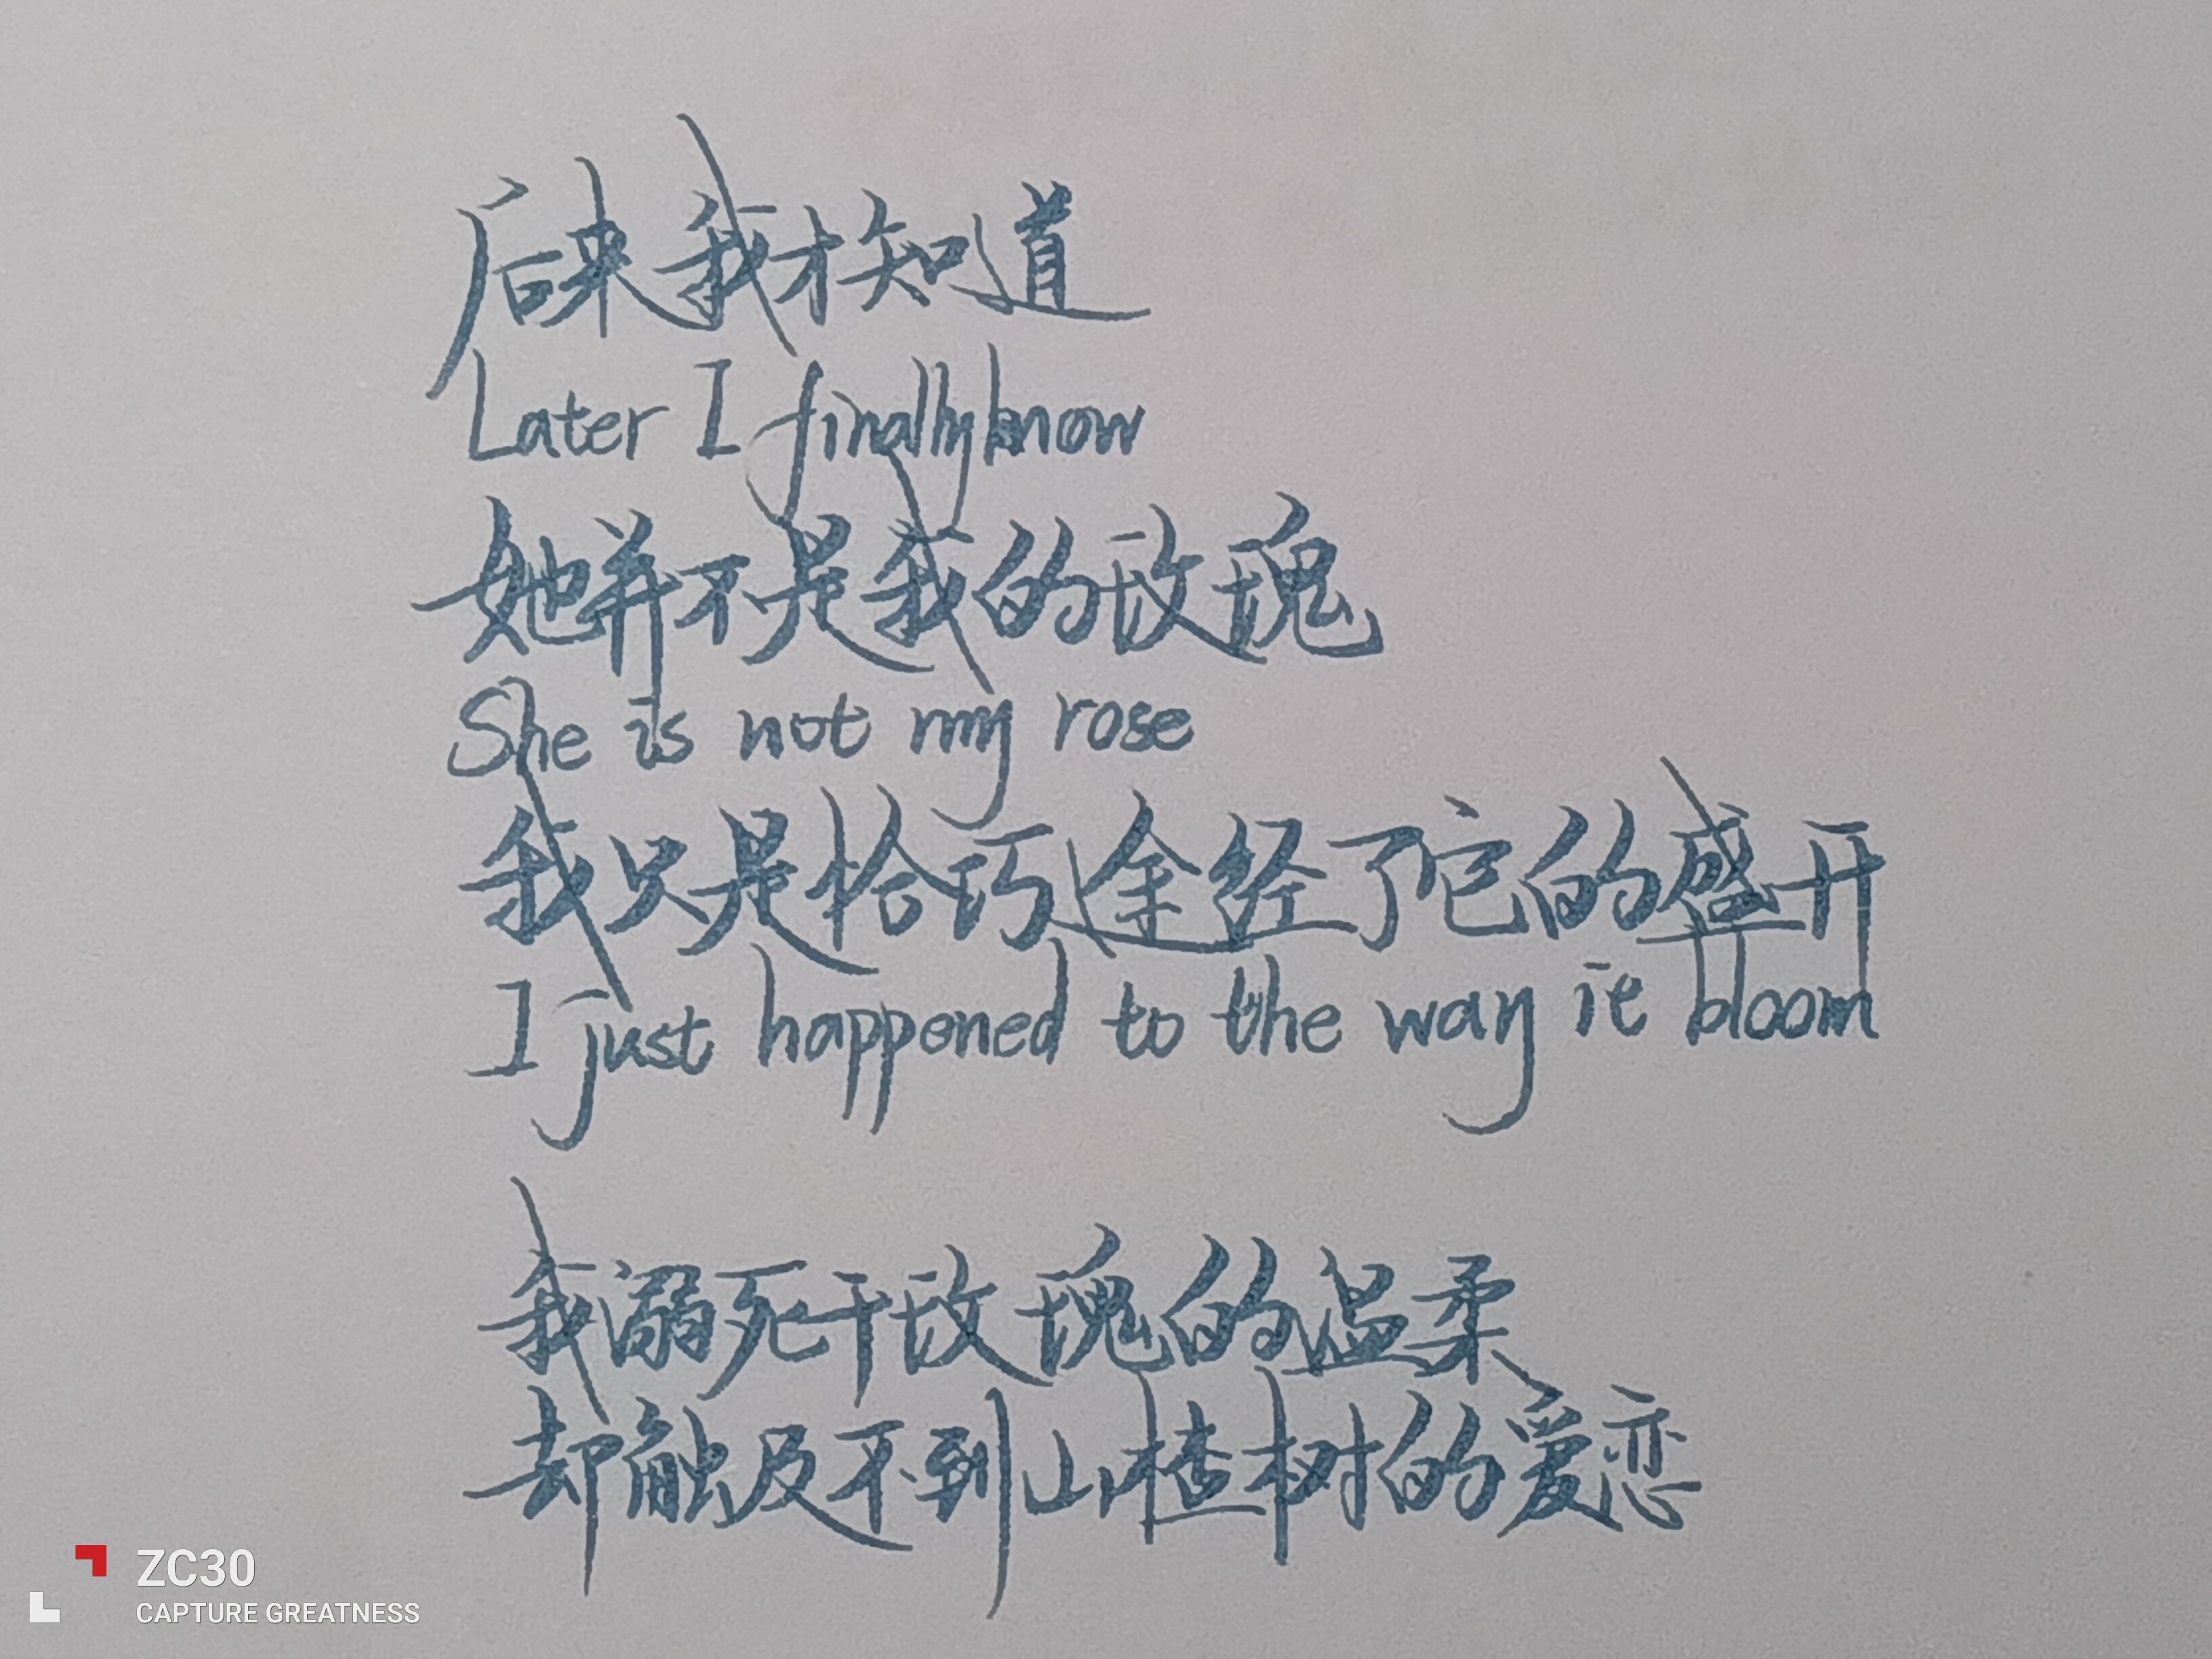 后来我才知道
Later I finally know
她并不是我的玫瑰
She is not my rose
我只是恰巧途经了它的盛开
I just happened to the way it bloom
我溺死于玫瑰的温柔
却触及不到山楂树的爱恋
ZC30
CAPTURE GREATNESS